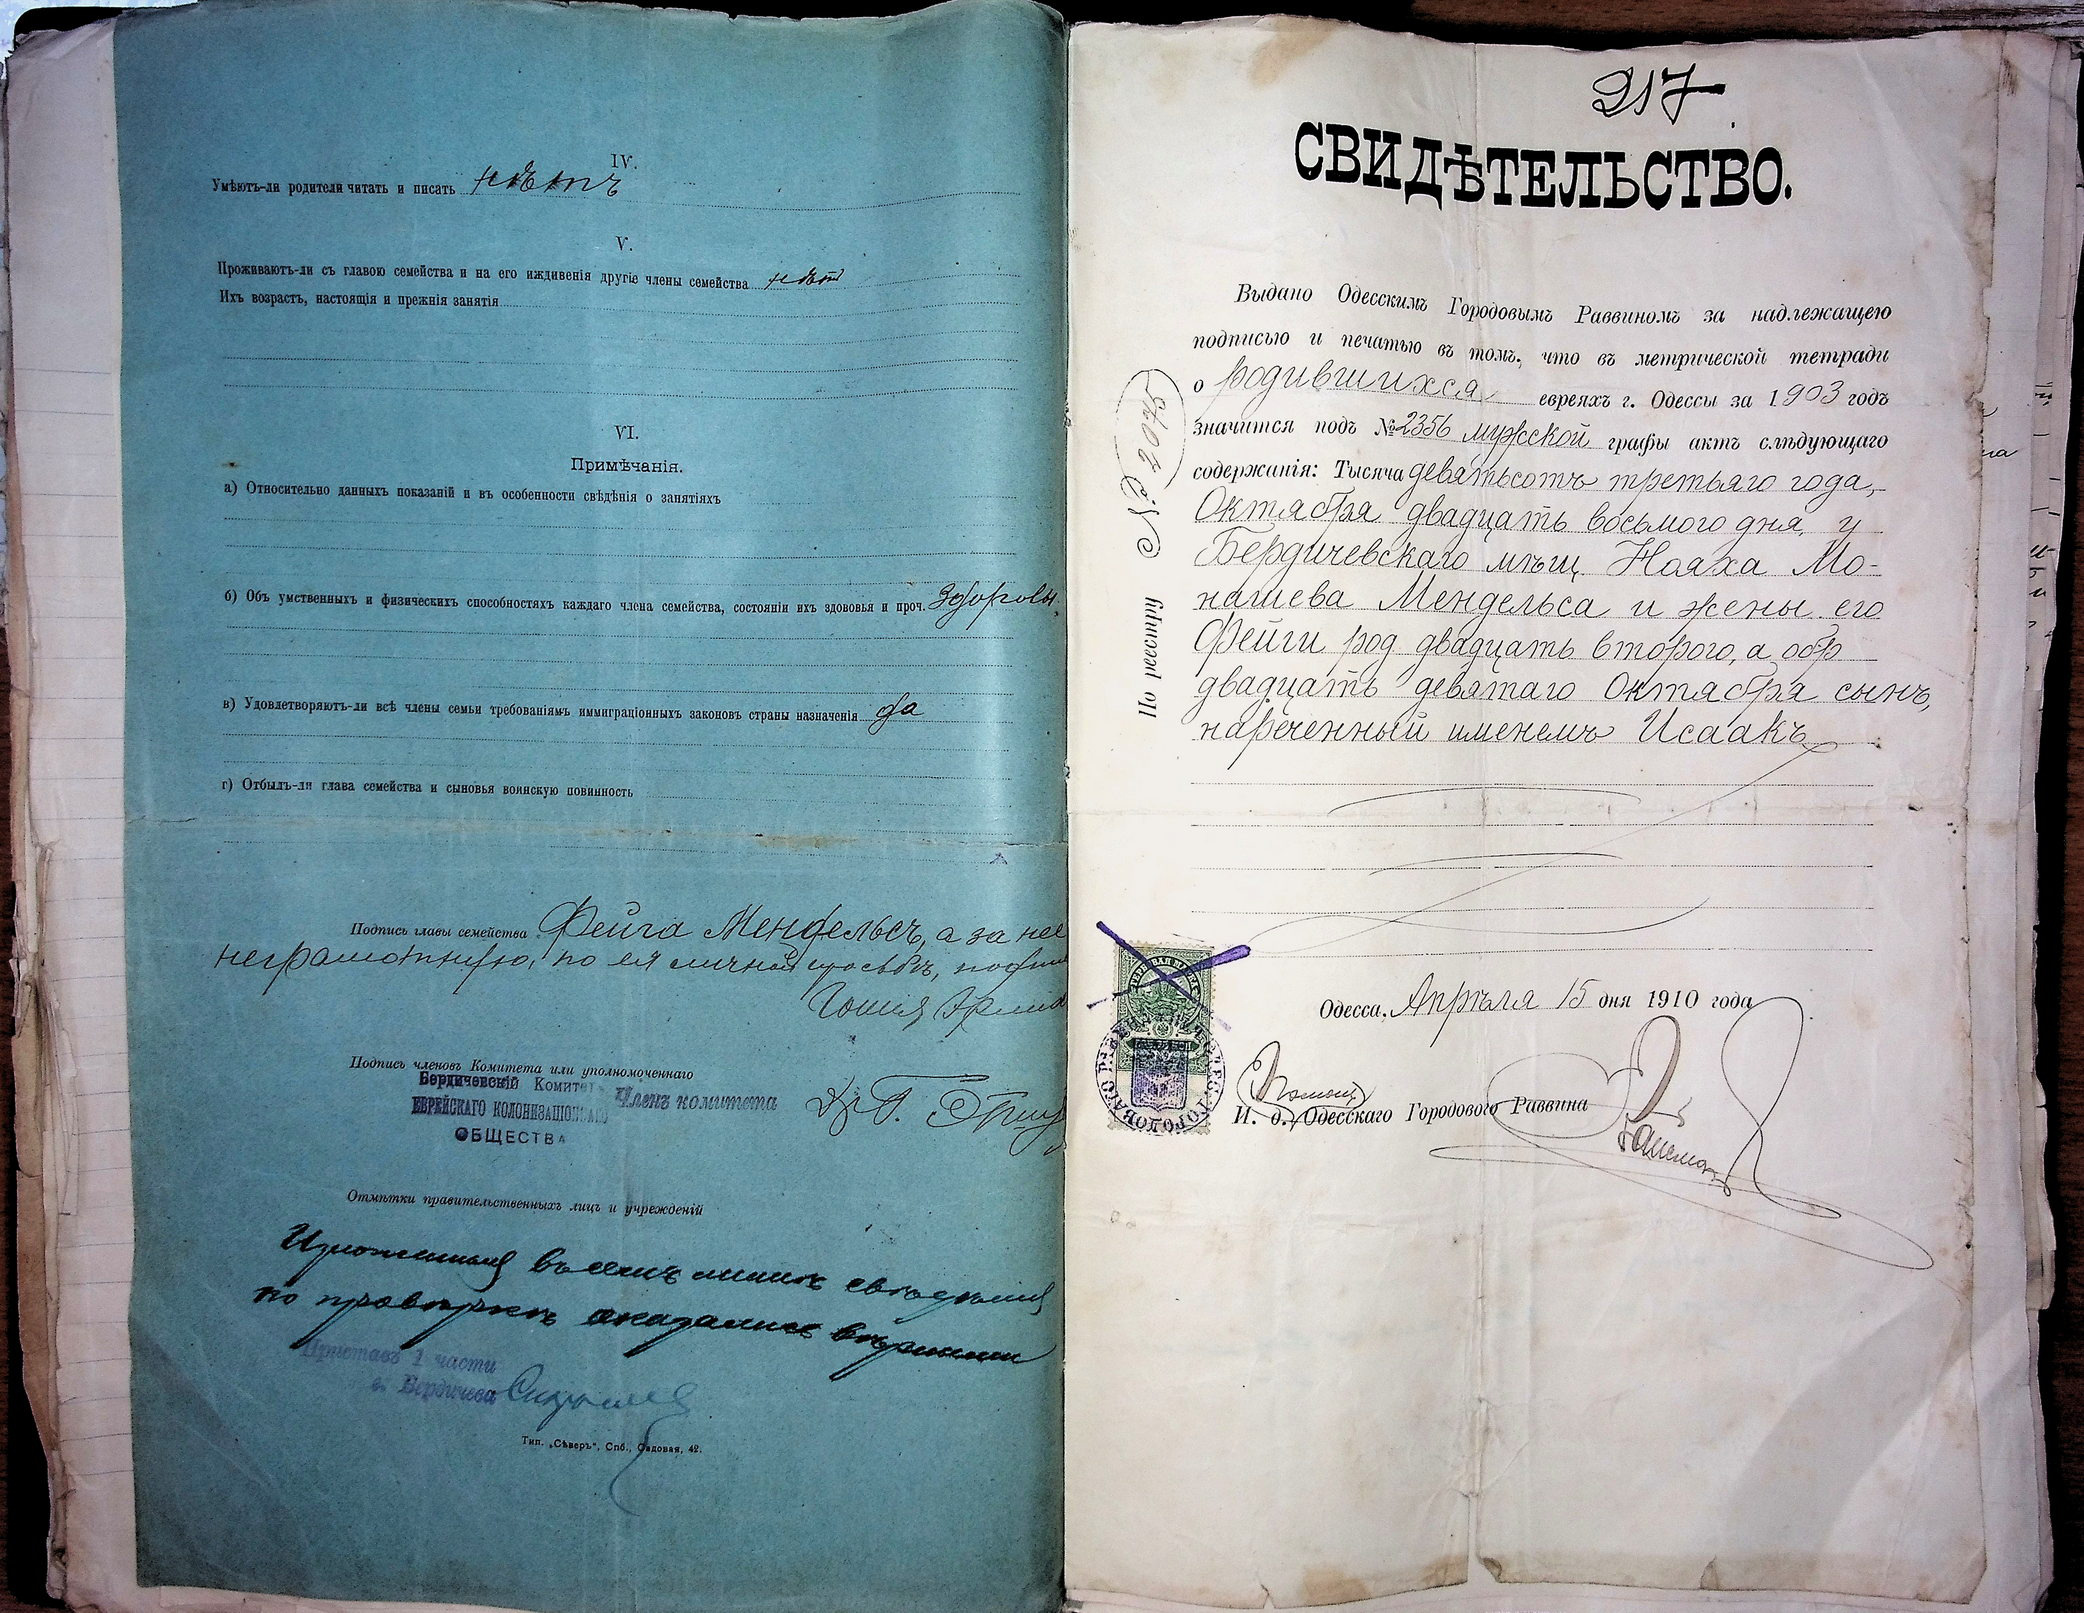 IV.
Умѣютъ-ли родители читать и писать нѣтъ
V.
Проживаютъ-ли съ главою семейства и на его иждивенія другіе члены семейства нѣт
Ихъ возрастъ, настоящія и прежнія занятія
VI.
Примѣчанія.
а) Относительно данныхъ показаній и въ особенности свѣдѣнія о занятіяхъ
б) Объ умственныхъ и физическихъ способностяхъ каждаго члена семейства, состояніи ихъ здововья и проч. Здоровы.
в) Удовлетворяютъ-ли всѣ члены семьи требованіямъ иммиграціонныхъ законовъ страны назначенія да
г) Отбылъ-ли глава семейства и сыновья воинскую повинность
Подпись главы семейства Фейга Мендельсъ, а за нее
неграмотную, по ея личной просьбѣ,
Подпись членовъ Комитета или уполномоченнаго
Бердичевскій Комите
ЕВРЕЙСКАГО КОЛОНИЗАЦІОННАГО Членъ комитета
ОБЩЕСТВА
Отмѣтки правительственныхъ лицъ и учрежденій
Изложенныя въ семъ листѣ свѣдѣнія
по провѣркѣ оказались вѣрными
Приставъ 1 части
г. Бердичева
Тип. „Сѣверъ", Спб., Садовая, 42.
217
СВИДѢТЕЛЬСТВО.
Выдано Одесскимъ Городовымъ Раввиномъ за надлежащею
подписью и печатью въ томъ, что въ метрической тетради
о родившихся евреяхъ г. Одессы за 1903 годъ
значится подъ № 2356 мужской графы актъ слѣдующаго
содержанія: Тысяча девятьсотъ третьяго года,
Октября двадцать восьмого дня, у
Бердичевскаго мѣщ. Нояха Мо-
нашева Мендельса и жены его
Фейги род двадцать второго, а обр
двадцать девятаго Октября сынъ,
нареченный именемъ Исаакъ
По реестру №
Одесса. Апрѣля 15 дня 1910 года
Помощ
И. д. Одесскаго Городового Раввина